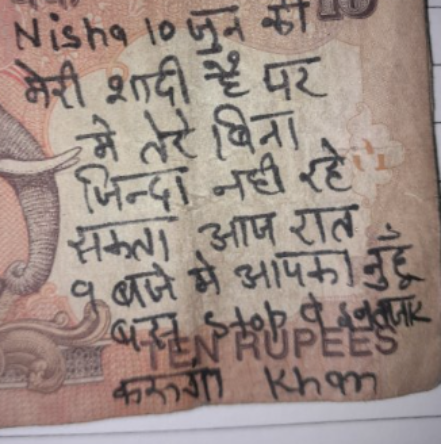 10
Nisha 10 जुन को
मेरी शादी है पर
मे तेरे बिना
जिन्दा नही रहे
सकता आज रात
9 बजे मे आपका नुहूँ
बस stop पे इनतजार
TEN RUPEES
करूंगा Kham